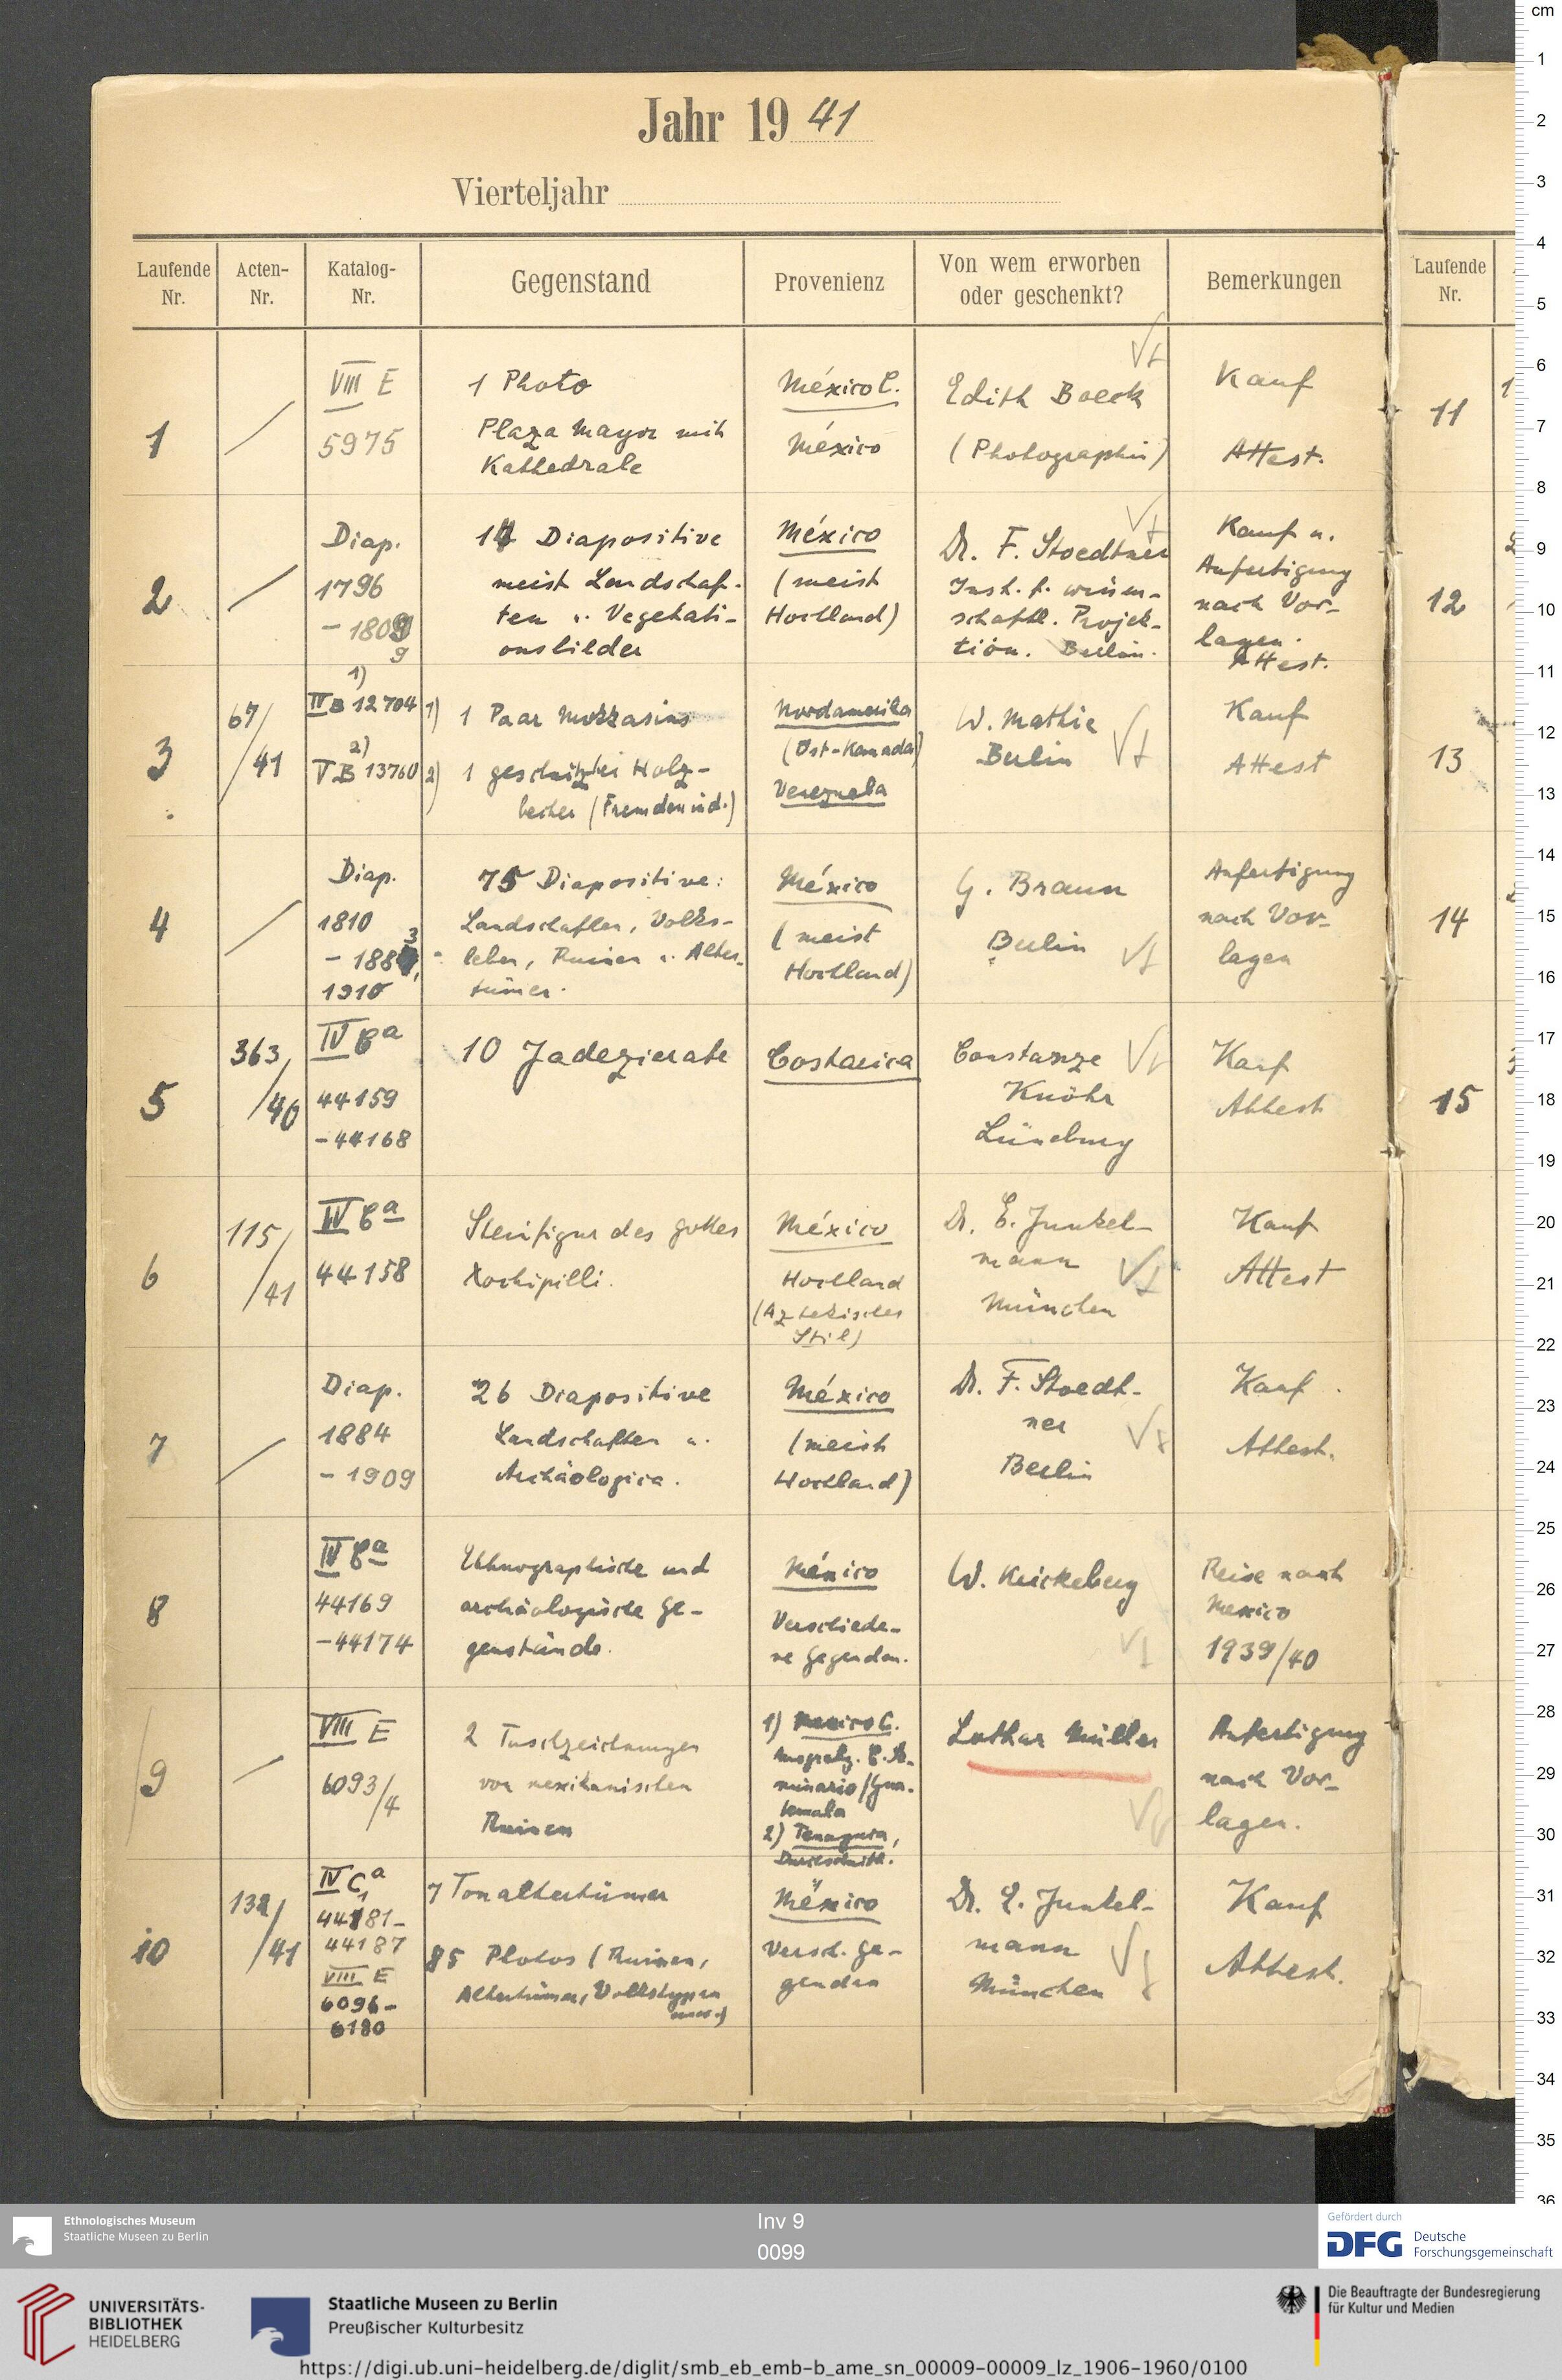 Jahr 1941
Vierteljahr
Laufende Nr.
Acten-Nr.
Katalog-Nr.
Gegenstand
Provenienz
Von wem erworben oder geschenkt?
Bemerkungen
Laufende Nr.
1
VIII E
5975
1 Photo
Plaza Mayor mit
Kathedrale
México C.
México
Edith Boeck
(Photographin)
Kauf
Attest.
11
2
Diap.
1796
- 1809
9
Diapositive
meist Landschaf-
ten u. Vegetati-
onsbilder
México
(meist
Hochland)
Dr. F. Stoedtner
Inst. f. wissen-
schaftl. Projek-
tion. Berlin.
Kauf u.
Anfertigung
nach Vor-
lagen.
Attest.
12
3
67/
41
1)
IV B 12704
2)
V B 13760
1) 1 Paar Mokkasins
2) 1 geschnitzter Holz-
becher (Fremdenind.)
Nordamerika
(Ost-Kanada)
Venezuela
W. Mathie
Berlin
Kauf
Attest
13
4
Diap.
1810
- 1883,
1910
75 Diapositive:
Landschaften, Volks-
leben, Ruinen u. Alter-
tümer.
México
(meist
Hochland)
G. Braun
Berlin
Anfertigung
nach Vor-
lagen
14
5
363/
40
IV Ca
44159
- 44168
10 Jadezierate
Costarica
Constanze
Knöhr
Lüneburg
Kauf
Attest
15
6
115/
41
IV Ca
44158
Steinfigur des Gottes
Xochipilli.
México
Hochland
(Aztekischer
Stil)
Dr. E. Junkel-
mann
München
Kauf
Attest
7
Diap.
1884
- 1909
26 Diapositive
Landschaften u.
Archäologica.
México
(meist
Hochland)
Dr. F. Stoedt-
ner
Berlin
Kauf
Attest.
8
IV Ca
44169
- 44174
Ethnographische und
archäologische Ge-
genstände.
México
Verschiede-
ne Gegenden.
W. Krickeberg
Reise nach
Mexico
1939/40
9
VIII E
6093/4
2 Tuschzeichnungen
von mexikanischen
Ruinen
1) Mexico C.
minario/Gua-
temala
2) Tenayuca,
Durchschnitt.
Lothar Müller
Anfertigung
nach Vor-
lagen.
10
132/
41
IV Ca
44181-
44187
VIII E
6096-
6180
7 Tonaltertümer
85 Photos (Ruinen,
Altertümer, Volkstypen
usw.)
México
Versch. Ge-
genden
Dr. E. Junkel-
mann
München
Kauf
Attest.
cm
1
2
3
4
5
6
7
8
9
10
11
12
13
14
15
16
17
18
19
20
21
22
23
24
25
26
27
28
29
30
31
32
33
34
35
36
Ethnologisches Museum
Staatliche Museen zu Berlin
Inv 9
0099
Gefördert durch
DFG Deutsche
Forschungsgemeinschaft
UNIVERSITÄTS-
BIBLIOTHEK
HEIDELBERG
Staatliche Museen zu Berlin
Preußischer Kulturbesitz
Die Beauftragte der Bundesregierung
für Kultur und Medien
https://digi.ub.uni-heidelberg.de/diglit/smb_eb_emb-b_ame_sn_00009-00009_lz_1906-1960/0100